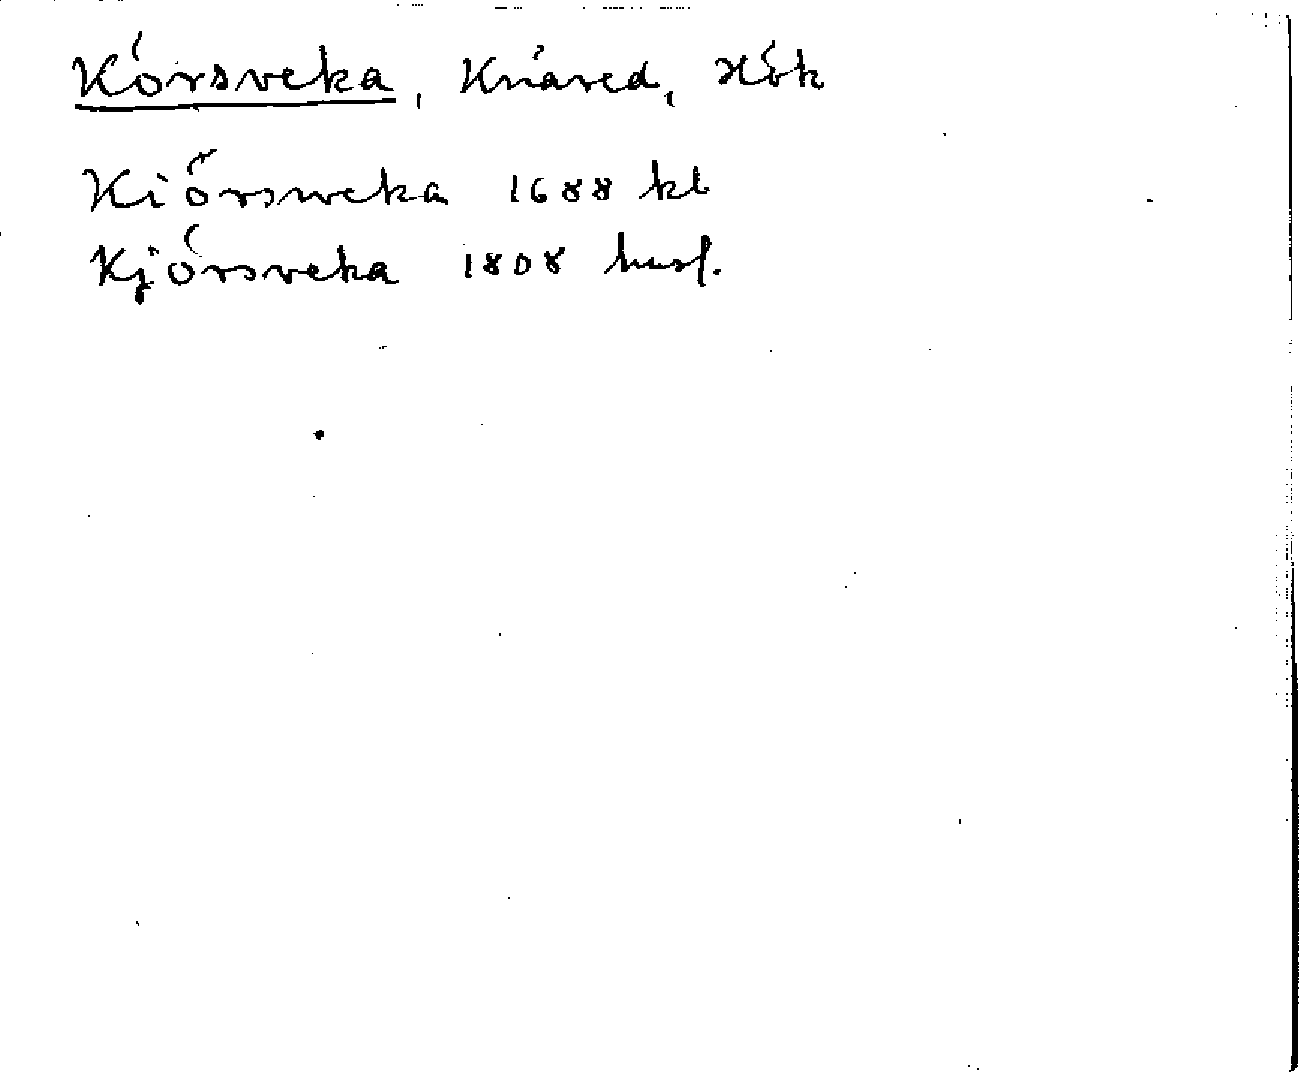 Körsveka, Knäred, Hök
Kiörsweka 1688 kl
Kjörsveka 1808 husf.